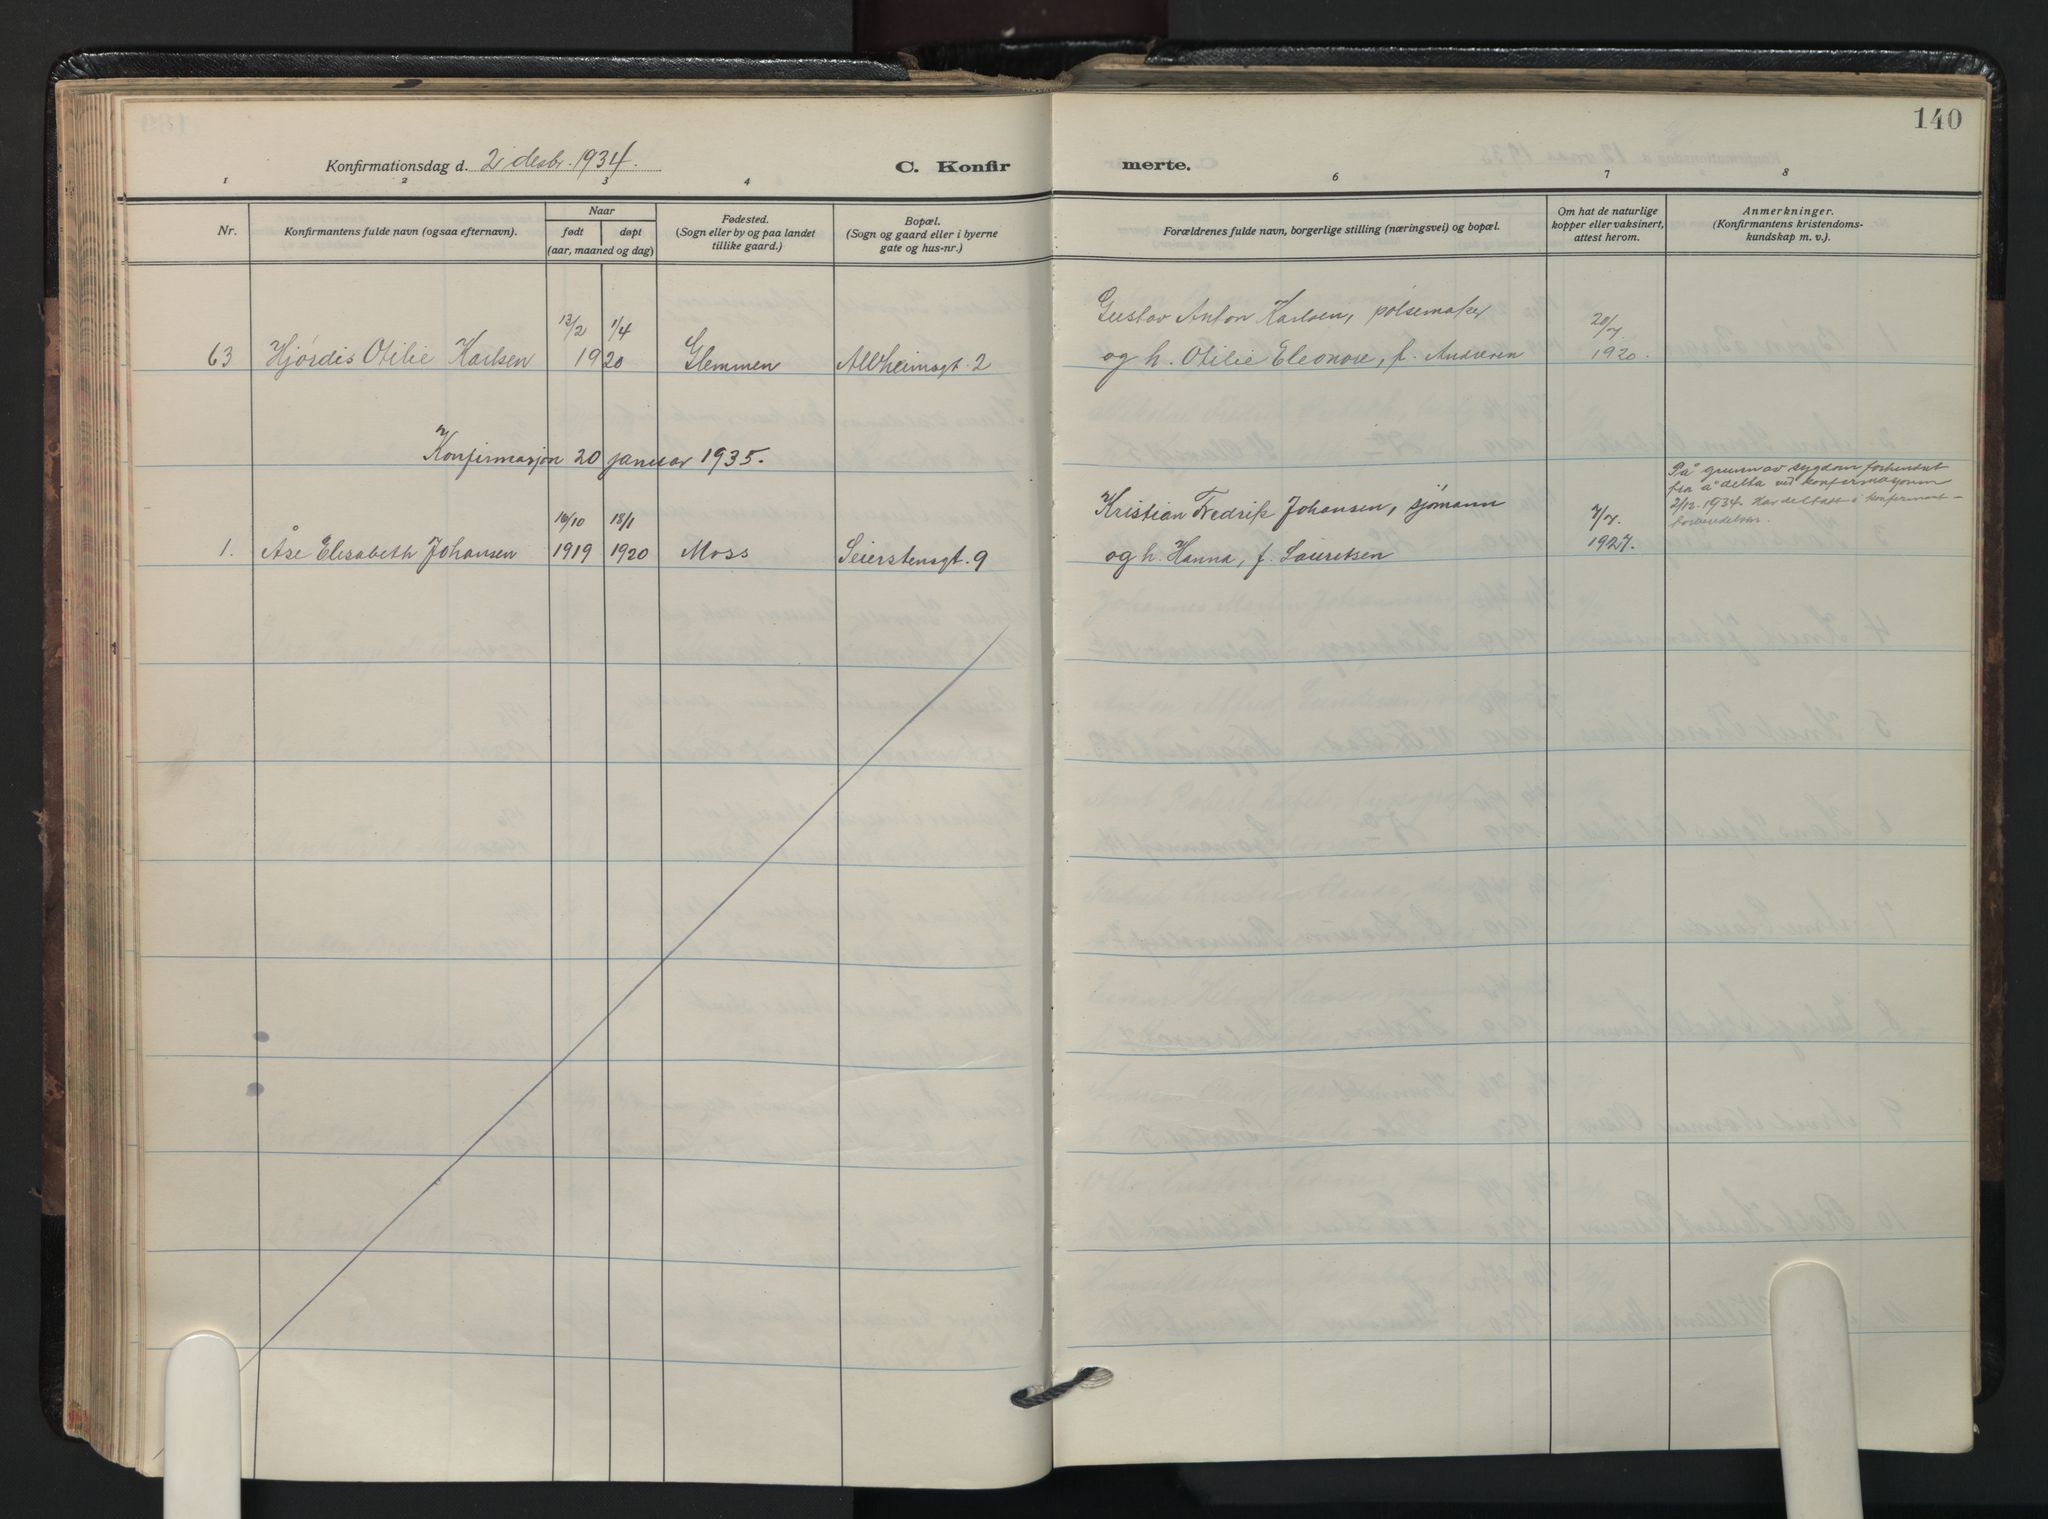 140
Konfirmationsdag d. 2 desbr. 1934.
C. Konfirmerte.
1 2 3 4 6 7 8
Nr.
Konfirmantens fulde navn (ogsaa efternavn).
Naar
født døpt
(aar, maaned og dag)
Fødested.
(Sogn eller by og paa landet
tillike gaard.)
Bopæl.
(Sogn og gaard eller i byerne
gate og hus-nr.)
Forældrenes fulde navn, borgerlige stilling (næringsvei) og bopæl.
Om hat de naturlige
kopper eller vaksinert,
attest herom.
Anmerkninger.
(Konfirmantens kristendoms-
kundskap m. v.).
13/2 1/4 Gustav Anton Karlsen, pølsemaker 20/7
63 Hjørdis Otilie Karlsen 1920 Glemmen Alvheimsgt. 2 og h. Otilie Eleonore, f. Andresen 1920.
Konfirmasjon 20 januar 1935.
På grunn av sygdom forhindret
fra å delta ved konfirmasjonen
2/12. 1934. Har deltatt i konfirmant-
forberedelsen.
16/10 18/1 Kristian Fredrik Johansen, sjømann 7/7.
1. Åse Elisabeth Johansen 1919 1920 Moss Seierstensgt. 9 og h. Hanna, f. Lauritsen 1927.